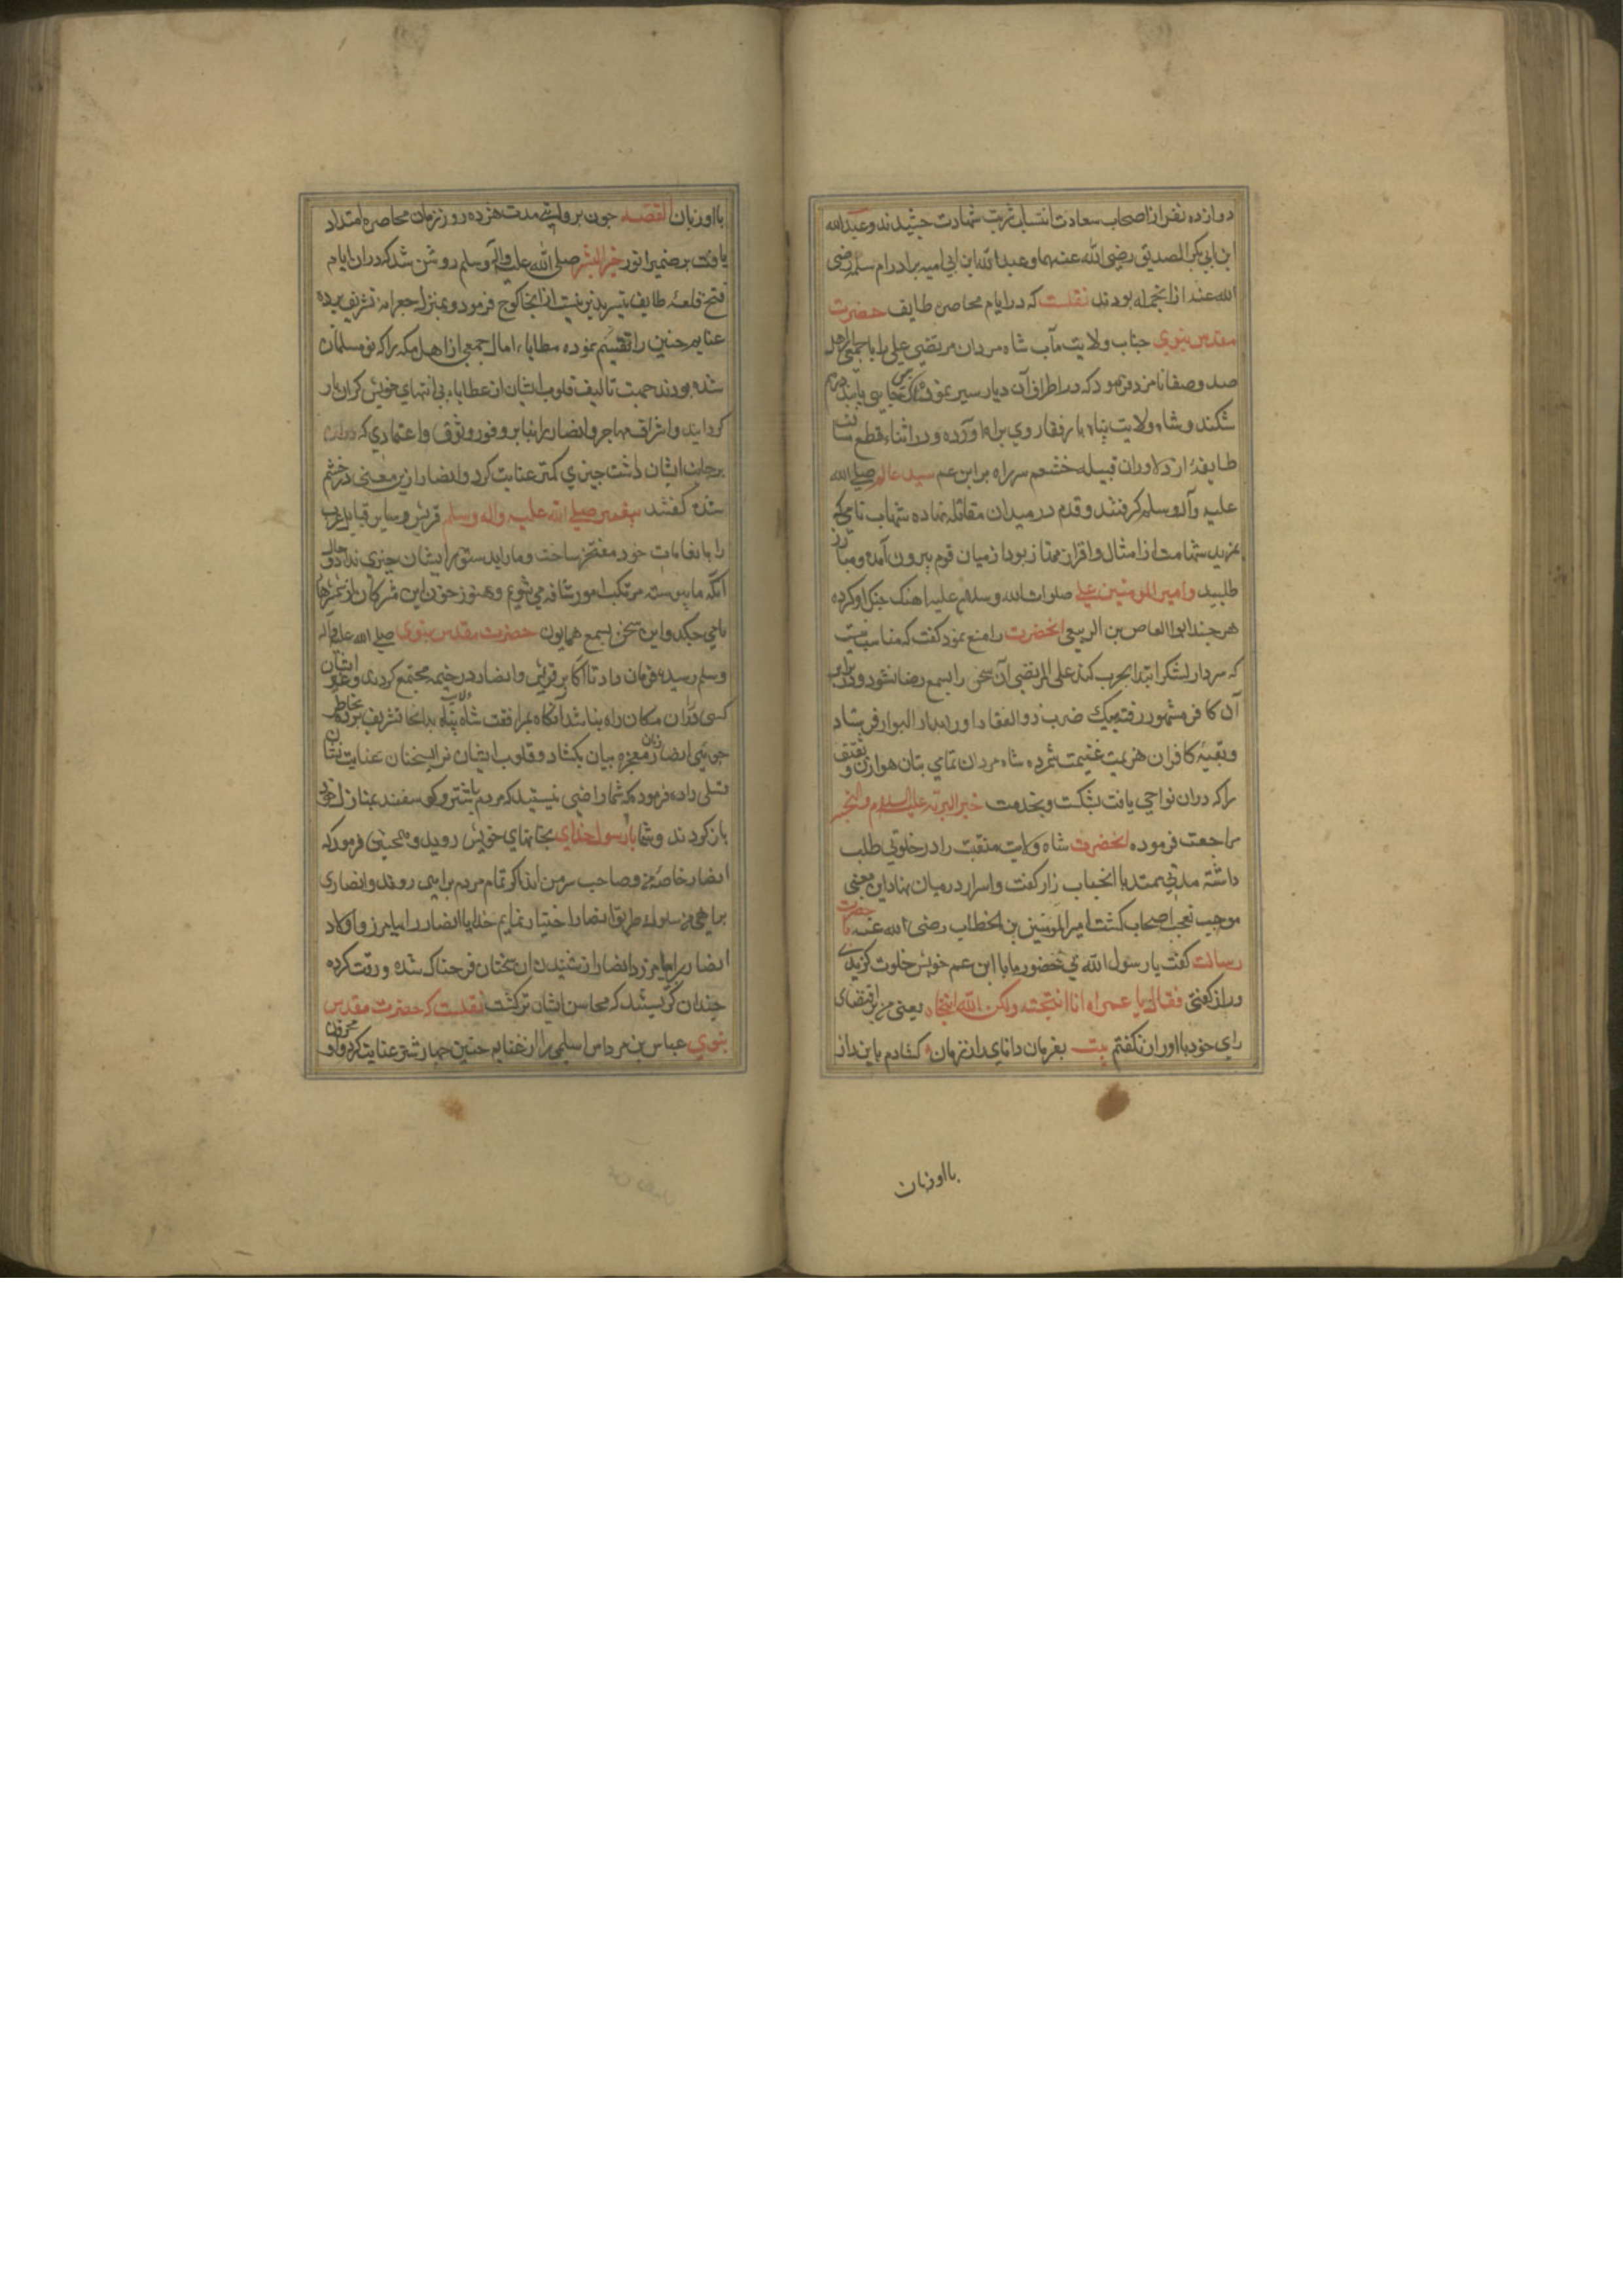 دوازده نفر از اصحاب سعادت انتساب شربت شهادت چشیدند و عبدالله
ابن ابی بکر الصدیق رضی الله عنهما و عبد الله ابن ابی امیه برادر ام سلمه رضی
الله عنه از انجمله بودند نقلست که در ایام محاصره طایف حضرت
مقدس نبوی جناب ولایت مآب شاه مردان مرتضی علی را با جمعی از اهل
صدق و صفا نامزد فرمود که در اطراف آن دیار سیر نموده هر جا بتی یابند درهم
شکند و شاه ولایت پناه با رفقا روی براه آورده و در اثناء قطع مسافت
طایفهٔ از دلاوران قبیله خثعم سر راه بر ابن عم سید عالم صلی الله
علیه وآله وسلم کرفتند و قدم در میدان مقاتله نهاده شهاب نامی که
بمزید شهامت از امثال و اقران ممتاز بود از میان قوم بیرون آمده و مبارز
طلبید و امیر المومنین علی صلوات الله و سلامه علیه اهنک جنک او کرده
هر چند ابو العاص بن الربیع انحضرت را منع نمود کفت که مناسب نیست
که سردار لشکر ابتدا بحرب کند علی المرتضی آن سخن را بسمع رضا نشنود و در برابر
آن کافر مشهور رفته بیک ضرب ذوالفقار او را بدار البوار فرستاد
و بقیهٔ کافران هزیمت غنیمت شمرده شاه مردان تمامی بتان هوازن و ثقیف
را که دران نواحی یافت بشکست و بخدمت خیر البریه علیه السلام والتحیه
مراجعت فرموده انحضرت شاه ولایت منقبت را در خلوتی طلب
داشته مدتی ممتد با انجناب راز کفت و اسرار در میان نهاد این معنی
موجب تعجب اصحاب کشت امیر المومنین بن الخطاب رضی الله عنه با حضرت
رسالت کفت یا رسول الله بی حضور ما با ابن عم خویش خلوت کزیدی
و راز کفتی فقال یا عمر ما انا انتجیته ولکن الله انتجاه یعنی من باقتضای
رای خود با او راز نکفتم بیت بفرمان دانای راز نهان کشادم باین راز
با او زبان
با او زبان القصه چون بروایتی مدت هژده روز زمان محاصره امتداد
یافت بر ضمیر انور خیر البشر صلی الله علیه وآله وسلم روشن شد که دران ایام
فتح قلعهٔ طایف تیسیر پذیر نیست از انجا کوچ فرمود و بمنزل جعرانه تشریف برده
غنایم حنین را تقسیم نموده مطایاء امال جمعی از اهل مکه را که نو مسلمان
شده بودند جهت تالیف قلوب ایشان از عطایاء بی انتهای خویش کران بار
کردانید و اشراف مهاجر و انصار را بنا بر وفور وثوق و اعتمادی که
بر جانب ایشان داشت چیزی کمتر عنایت کرد و انصار ازین معنی در خشم
شده کفتند پیغمبر صلی الله علیه واله وسلم قریش و سایر قبایل عرب
را بانعامات خود مفتخر ساخت و ما را بدستور ایشان چیزی نداد و حال
آنکه ما پیوسته مرتکب امور شاقه می شویم و هنوز خون این مشرکان از شمشیرها
ما می چکد و این سخن بسمع همایون حضرت مقدس نبوی صلی الله علیه واله
وسلم رسیده فرمان داد تا اکابر قریش و انصار در خیمه مجتمع کردند و غیر ایشان
کسی دران مکان راه نباشد آنکاه بمرافقت شاه ولایت پناه بدانجا تشریف برده بخاطر
جویی انصار زبان معجزه بیان بکشاد و قلوب ایشان را بسخنان عنایت نشان
تسلی داده فرمود که شما راضی نیستید که مردم با شتر و کوسفند بمنازل خود
باز کردند و شما با رسول خدای بخانهای خویش روید و همچنین فرمود که
انصار خاصه من و صاحب سر من اند اکر تمام مردم براهی روند و انصاری
براهی من سلوک طریق انصار اختیار نمایم خدایا انصار را بیامرز و اولاد
انصار را بیامرز و انصار از شنیدن ان سخنان فرحناک شده و رقت کرده
چندان کریستند که محاسن ایشان تر کشت نقلست که حضرت مقدس
نبوی عباس بن مرداس اسلمی را از غنایم حنین چهار شتر عنایت کرد و او محزون